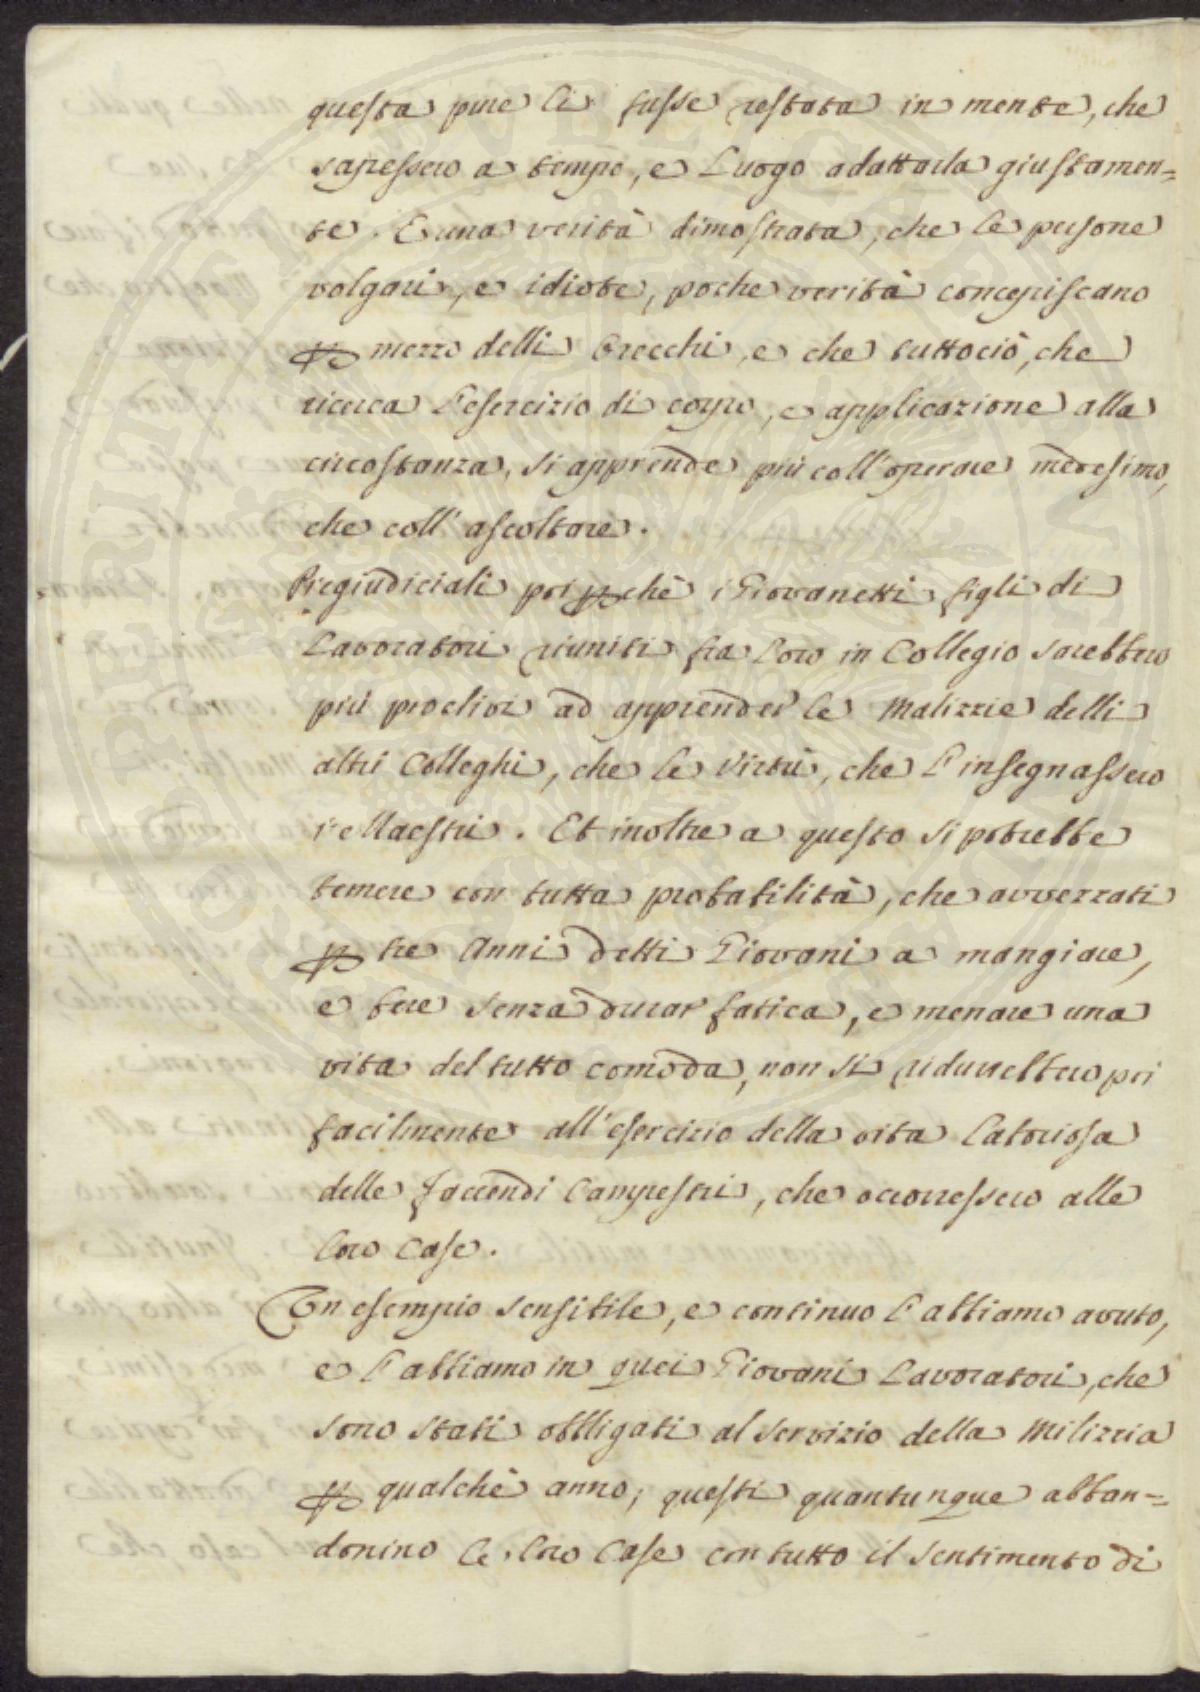 questa pure li fusse restata in mente, che
sapessero a tempo, e Luogo adattarla giustamen=
te. E una verità dimostrata, che le persone
volgari, e idiote, poche verità concepiscano
p mezzo delli Orecchi, e che tuttociò, che
ricerca l'esercizio di corpo, e applicazione alla
circostanza, si apprende più coll'operare medesimo,
che coll'ascoltare.
Pregiudiciali poi pchè i Giovanetti figli di
Lavoratori riuniti fra loro in Collegio sarebbero
più proclivi ad apprender le Malizzie delli
altri Colleghi, che le Virtù, che l'insegnassero
i Maestri. Et inoltre a questo si potrebbe
temere con tutta probabilità, che avvezzati
p tre Anni detti Giovani a mangiare,
e bere senza durar fatica, e menare una
vita del tutto comoda, non si ridurrebbero poi
facilmente all'esercizio della vita laboriosa
delle faccendi Campestri, che occorressero alle
loro Case.
Un esempio sensibile, e continuo l'abbiamo avuto,
e l'abbiamo in quei Giovani Lavoratori, che
sono stati obbligati al servizio della Milizzia
p qualchè anno; questi quantunque abban=
donino le loro Case con tutto il sentimento di